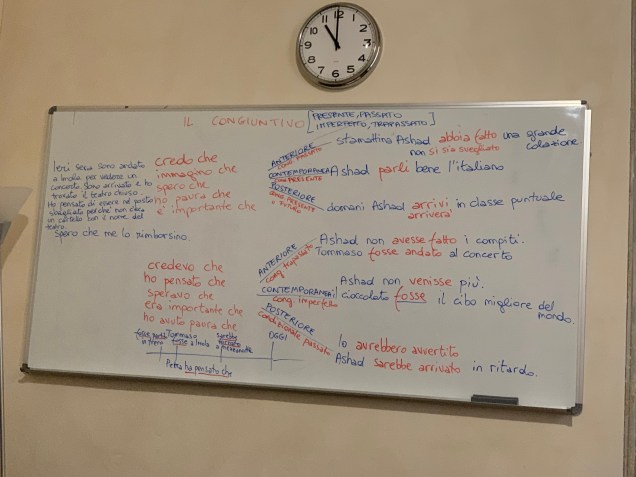 IL CONGIUNTIVO [PRESENTE, PASSATO
IMPERFETTO, TRAPASSATO]
Ieri sera sono andato
a Imola per vedere un
concerto. Sono arrivato e ho
trovato il teatro chiuso.
Ho pensato di essere nel posto
sbagliato perché non c'era
un cartello con il nome del
teatro.
Spero che me lo rimborsino.
credo che
immagino che
spero che
ho paura che
e' importante che
ANTERIORE
cong. passato
stamattina Ashad abbia fatto una grande
colazione
non si sia svegliato
CONTEMPORANEA
cong. PRESENTE
Ashad parli bene l'italiano
POSTERIORE
cong. PRESENTE
o futuro
domani Ashad arrivi in classe puntuale
arriverà
credevo che
ho pensato che
speravo che
era importante che
ho avuto paura che
ANTERIORE
cong. trapassato
Ashad non avesse fatto i compiti.
Tommaso fosse andato al concerto
CONTEMPORANEA
cong. imperfetto
Ashad non venisse più.
il cioccolato fosse il cibo migliore del
mondo.
POSTERIORE
condizionale passato
lo avrebbero avvertito
Ashad sarebbe arrivato in ritardo.
Tommaso
fosse a Imola
sarebbe
OGGI
Petra ha pensato che